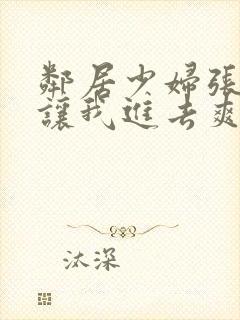 鄰居少婦張
讓我進去爽
汰深